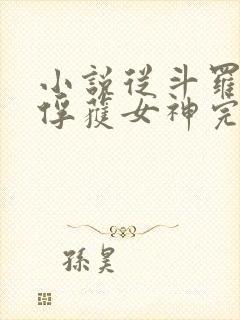 小說從斗羅
俘獲女神完
孫昊